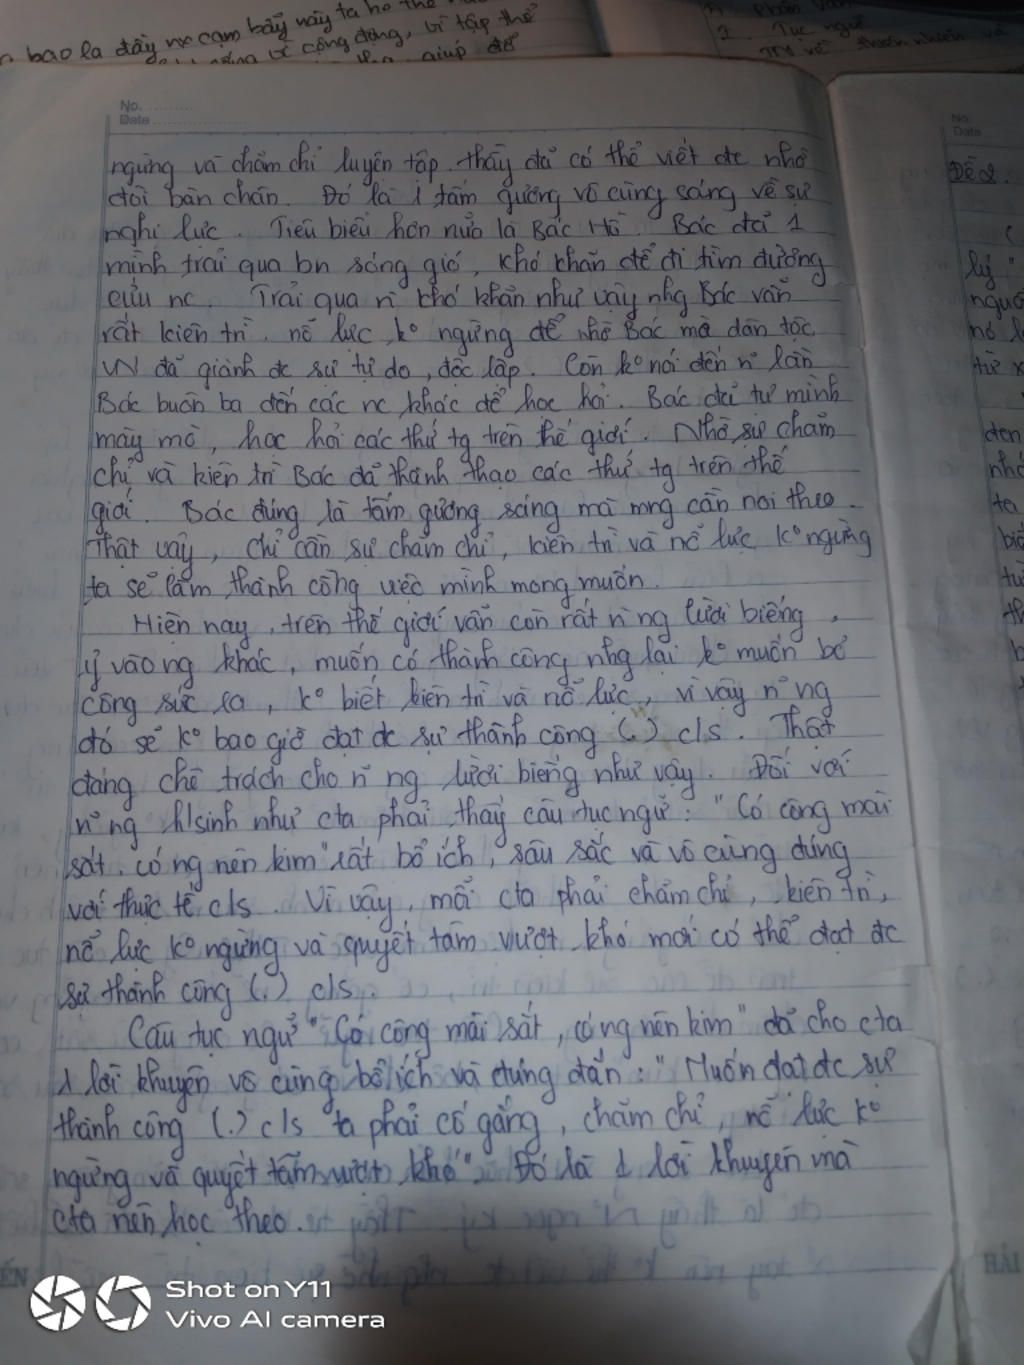 bao la đầy nx cạm bẫy này ta
cộng đồng, vì tập thể
giúp đỡ
2. Tục ngữ
TN về thiên nhiên và
No.
Date
ngừng và chăm chỉ luyện tập. thầy đã có thể viết đc nhờ
đôi bàn chân. Đó là 1 tấm gương vô cùng sáng về sự
nghị lực. Tiêu biểu hơn nữa là Bác Hồ. Bác đã 1
mình trải qua bn sóng gió, khó khăn để đi tìm đường
cứu nc. Trải qua n~ khó khăn như vậy nhg Bác vẫn
rất kiên trì. nỗ lực ko ngừng để nhờ Bác mà dân tộc
VN đã giành đc sự tự do, độc lập. Còn ko nói đến n~ lần
Bác buôn ba đến các nc khác để học hỏi. Bác đã tự mình
mày mò, học hỏi các thứ tg trên thế giới. Nhờ sự chăm
chỉ và kiên trì Bác đã thành thạo các thứ tg trên thế
giới. Bác đúng là tấm gương sáng mà mng cần noi theo.
Thật vậy, chỉ cần sự chăm chỉ, kiên trì và nỗ lực ko ngừng
ta sẽ làm thành công việc mình mong muốn.
Hiện nay, trên thế giới vẫn còn rất n~ ng lười biếng,
ỷ vào ng khác, muốn có thành công nhg lại ko muốn bỏ
công sức ra, ko biết kiên trì và nỗ lực, vì vậy n~ ng
đó sẽ ko bao giờ đạt đc sự thành công (.) c/s. Thật
đáng chê trách cho n~ ng lười biếng như vậy. Đối với
n~ ng h/sinh như cta phải thấy câu tục ngữ: "Có công mài
sắt, có ng nên kim" rất bổ ích, sâu sắc và vô cùng đúng
với thực tế c/s. Vì vậy, mỗi cta phải chăm chỉ, kiên trì,
nỗ lực ko ngừng và quyết tâm vượt khó mới có thể đạt đc
sự thành công (.) c/s.
Câu tục ngữ "Có công mài sắt, có ng nên kim" đã cho cta
1 lời khuyên vô cùng bổ ích và đúng đắn: "Muốn đạt đc sự
thành công (.) c/s ta phải cố gắng, chăm chỉ, nỗ lực ko
ngừng và quyết tâm vượt khó". Đó là 1 lời khuyên mà
cta nên học theo.
No
Date
Đề 2.
lý "
HẢI
Shot on Y11
Vivo AI camera